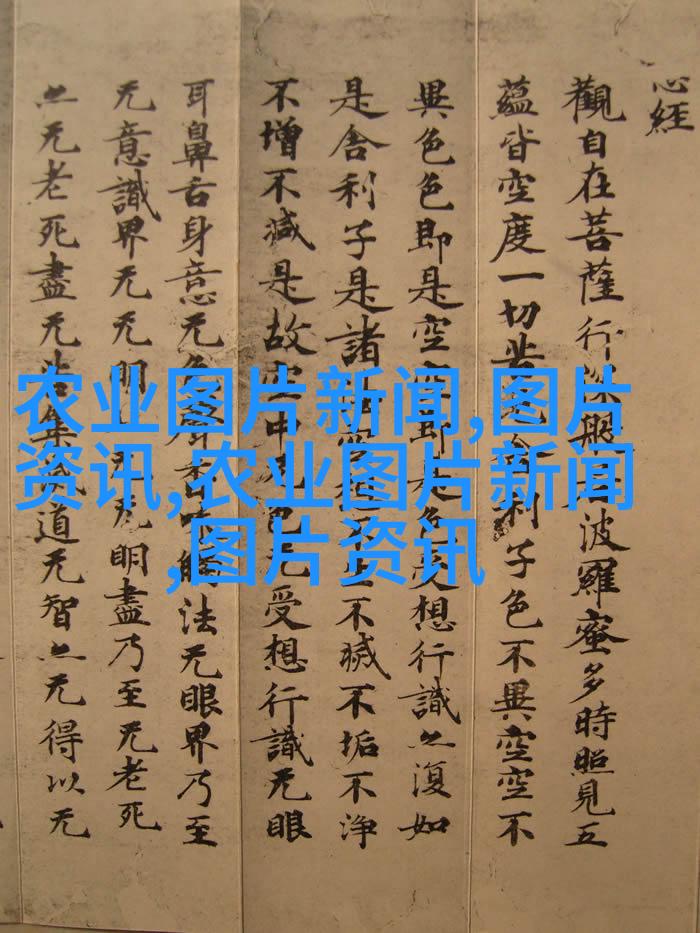 心經
觀自在菩薩行深般若波羅蜜多時照見五
蘊皆空度一切苦厄舍利子色不異空空不
異色色即是空空即是色受想行識亦復如
是舍利子是諸法空相不生不滅不垢不淨
不增不減是故空中无色无受想行識无眼
耳鼻舌身意无色聲香味觸法无眼界乃至
无意識界无无明亦无无明盡乃至无老死
亦无老死盡无苦集滅道无智亦无得以无
农业图片新闻,图片
资讯,农业图片新闻
,图片资讯